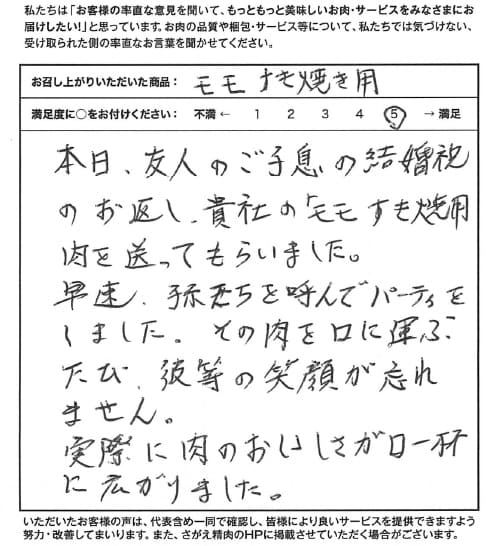 私たちは「お客様の率直な意見を聞いて、もっともっと美味しいお肉・サービスをみなさまにお
届けしたい!」と思っています。お肉の品質や梱包・サービス等について、私たちでは気づけない、
受け取られた側の率直なお言葉を聞かせてください。
お召し上がりいただいた商品: モモすき焼き用
満足度に○をお付けください: 不満 ← 1 2 3 4 5 → 満足
本日、友人のご子息の結婚祝
のお返し、貴社の「モモすき焼用
肉を送ってもらいました。
早速、孫たちを呼んでパーティを
しました。その肉を口に運ぶ
たび、彼等の笑顔が忘れ
ません。
実際に肉のおいしさが口一杯
に広がりました。
いただいたお客様の声は、代表含め一同で確認し、皆様により良いサービスを提供できますよう
努力・改善してまいります。また、さがえ精肉のHPに掲載させていただく場合がございます。